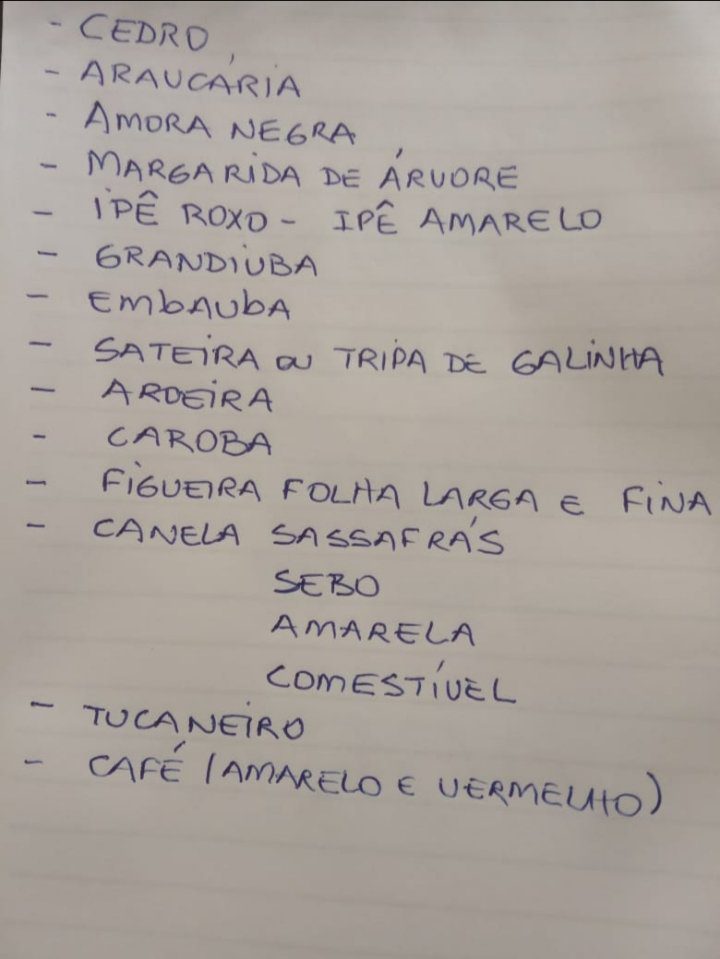 - CEDRO
- ARAUCÁRIA
- AMORA NEGRA
- MARGARIDA DE ÁRVORE
- IPÊ ROXO - IPÊ AMARELO
- GRANDIUBA
- EMbAUbA
- SATEIRA OU TRIPA DE GALINHA
- AROEIRA
- CAROBA
- FIGUEIRA FOLHA LARGA E FINA
- CANELA SASSAFRÁS
SEBO
AMARELA
COMESTÍVEL
- TUCANEIRO
- CAFÉ (AMARELO E VERMELHO)